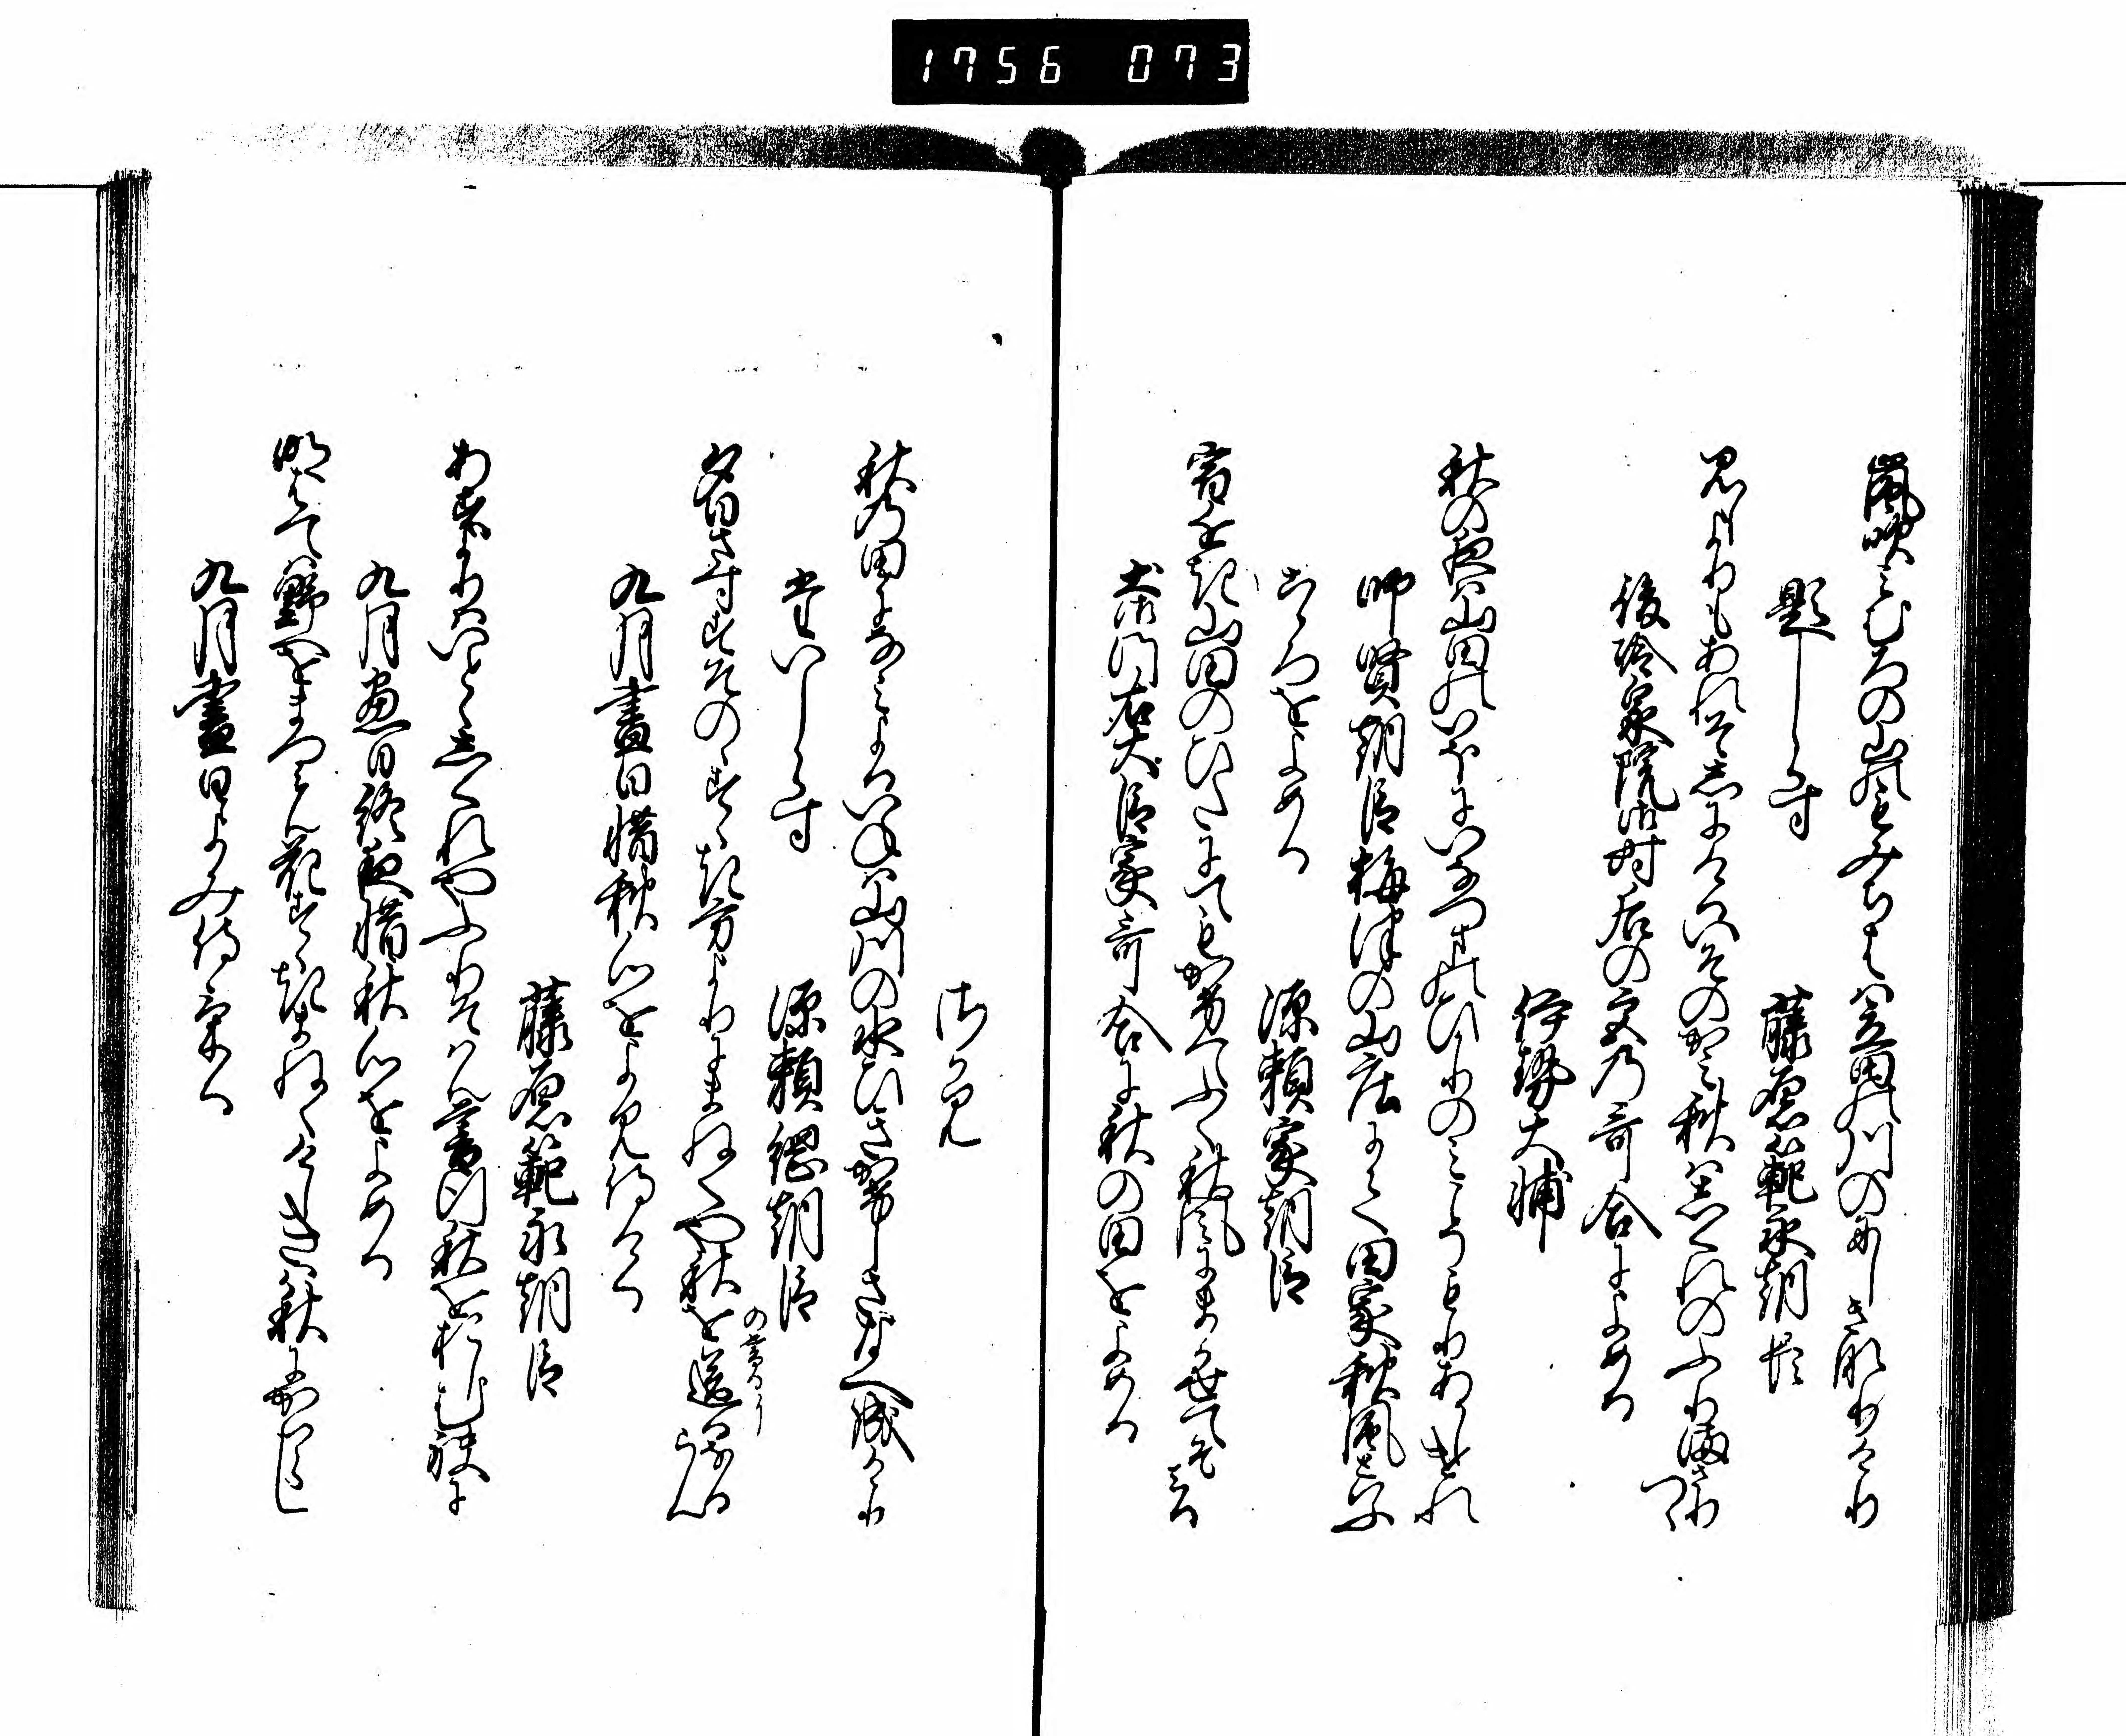 1756 073
嵐吹みむろの山のもみちはゝ立田の川のにしき成けり
題しらす
藤原範永朝臣
見しよりもあれそしにけるいその神秋は時雨のふりまさりつゝ
後冷泉院御時后の宮乃哥合によめる
伊勢大輔
秋の夜は山田のいほにいなつまのひかりのみこそもりあかしけれ
師賢朝臣梅津の山庄にて田家秋風と云
こゝろをよめる
源頼家朝臣
宿ちかき山田のひたにてもかけてふく秋風にまかせてそみる
土御門右大臣家哥合に秋の田をよめる
相模
秋の田になみよるいねは山川の水ひきかけしさなへ成けり
たいしらす
源頼綱朝臣
夕日さすすその のすゝき方よりにまねくや秋を送るなるらん
九月尽日惜秋心をよみ侍ける
藤原範永朝臣
あすよりはいとゝしくれやふりそはん暮行秋をおしむ袂に
九月尽日終夜惜秋心をよめる
明はては野へをまつみん花すゝきまねくけしきは秋にかはらし
九月尽日よみ侍ける